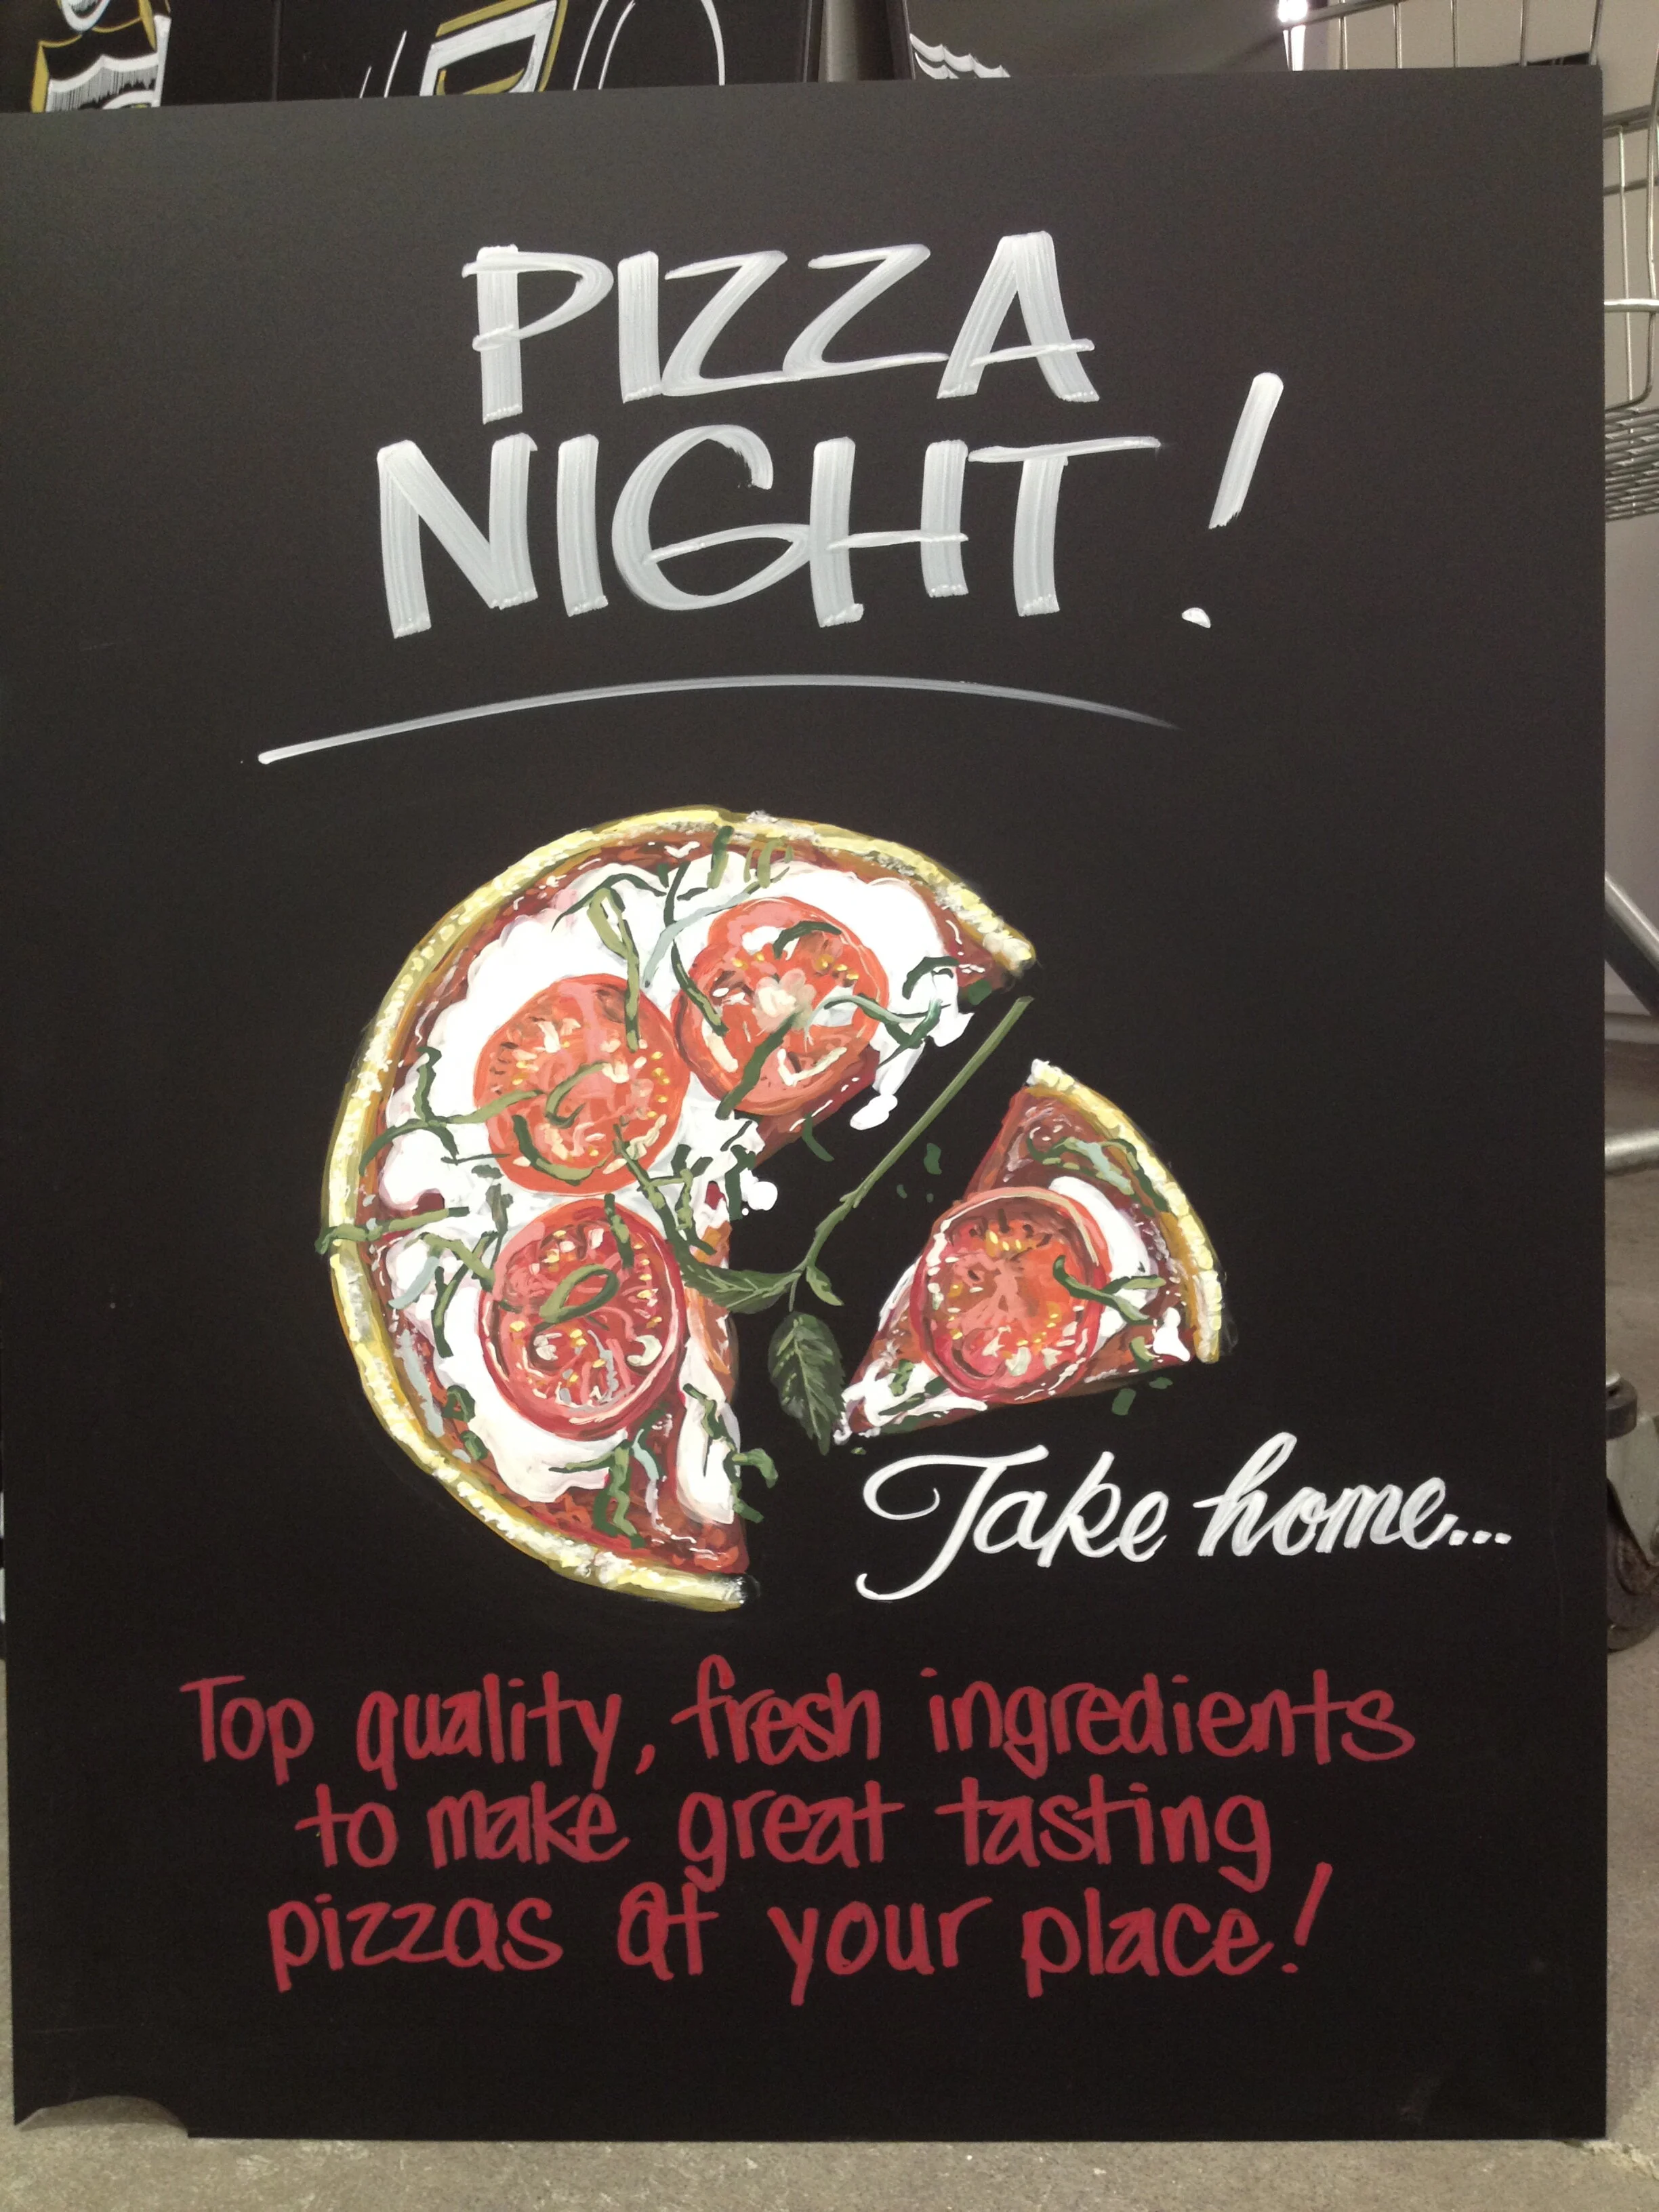 PIZZA
NIGHT!
Take home...
Top quality, fresh ingredients
to make great tasting
pizzas at your place!